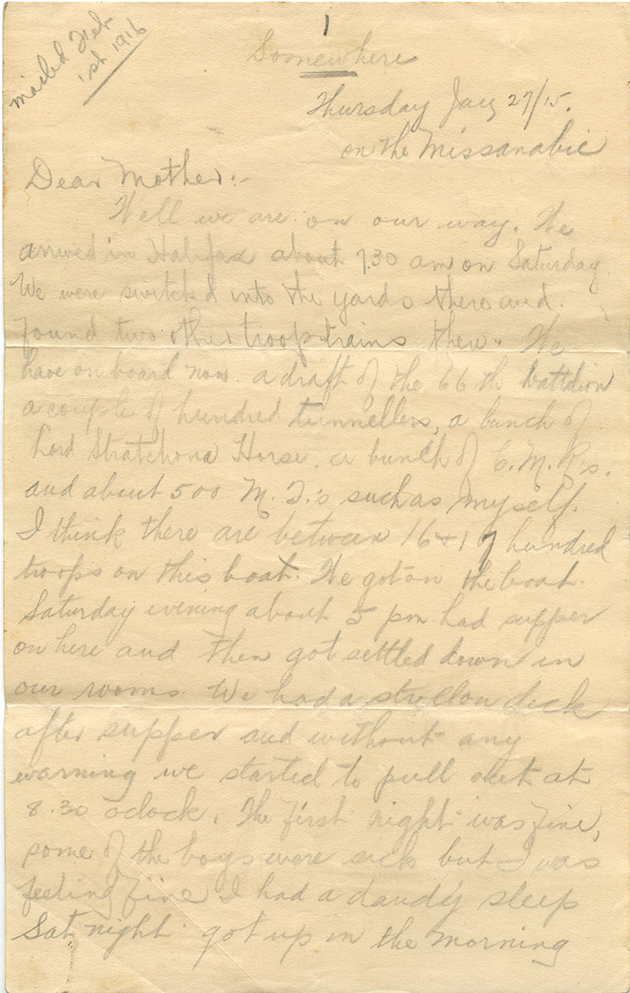 1
mailed Feb
1st 1916
Somewhere
Thursday Jany 27/15.
on the Missanabie
Dear Mother:-
Well we are on our way. We
arrived in Halifax about 7.30 am on Saturday
We were switched into the yards there and
found two other troop trains there. We
have on board now a draft of the 66th Battalion
a couple of hundred tunnellers, a bunch of
Lord Strathcona Horse. a bunch of C.M.R's.
and about 500 M. D.'s such as myself.
I think there are between 16 & 17 hundred
troops on this boat. We got on the boat
Saturday evening about 5 pm had supper
on here and then got settled down in
our rooms We had a stroll on deck
after supper and without any
warning we started to pull out at
8.30 oclock. The first night was fine,
some of the boys were sick but I was
feeling fine I had a dandy sleep
Sat night got up in the morning